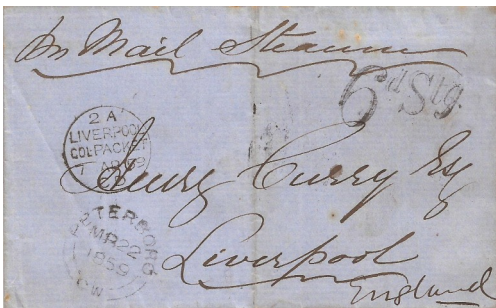 Per Mail Steamer
6d Stg.
2 A
LIVERPOOL
COL. PACKET
AP
59
Henry Curry Esq
TERBORO
MR 22
1859
C.W
Liverpool
England